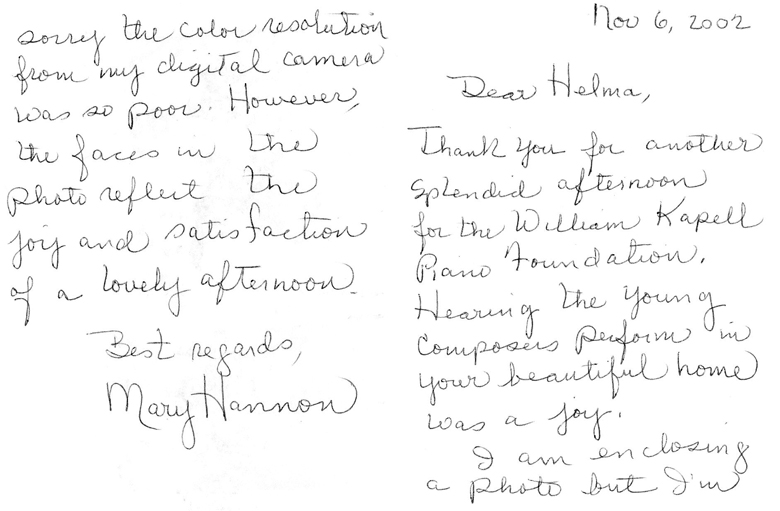 Nov 6, 2002
Dear Helma,
Thank you for another
splendid afternoon
for the William Kapell
Piano Foundation.
Hearing the young
composers perform in
your beautiful home
was a joy.
I am enclosing
a photo but I'm
sorry the color resolution
from my digital camera
was so poor. However,
the faces in the
photo reflect the
joy and satisfaction
of a lovely afternoon.
Best regards,
Mary Hannon